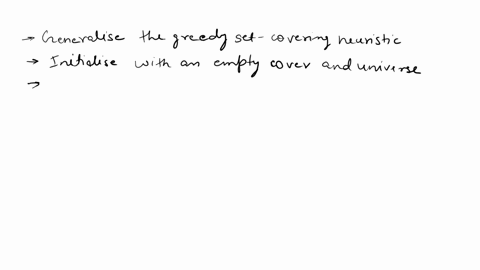 → Generalise the greedy set-covering heuristic
→ Initialise with an empty cover and universe
→